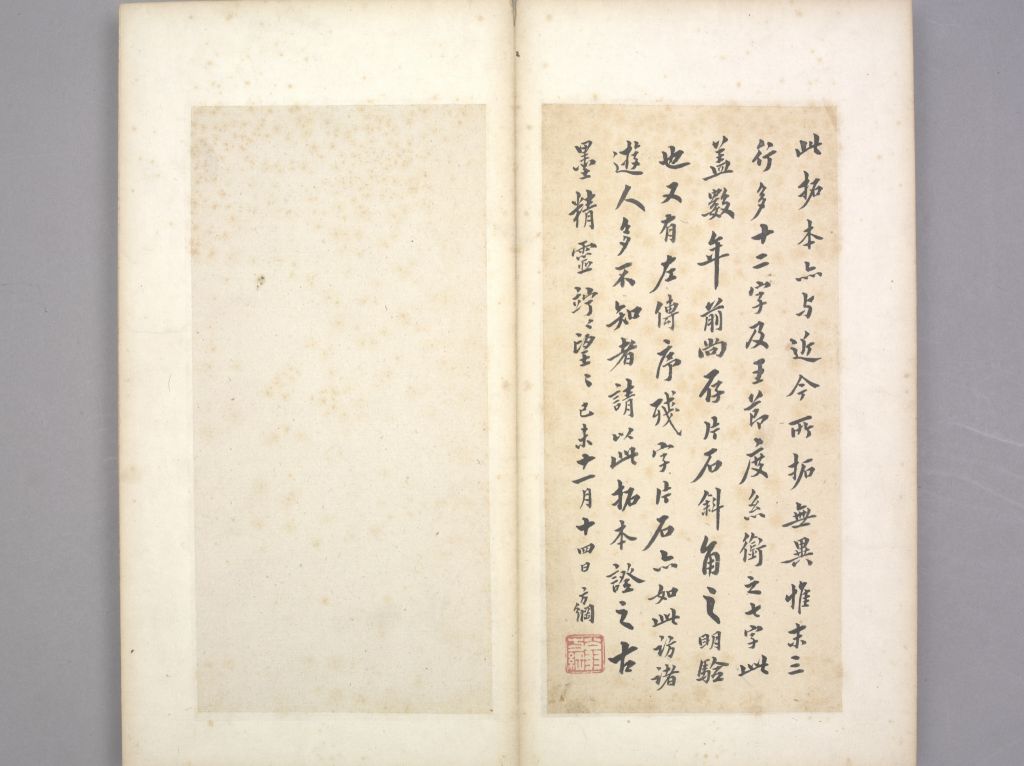 此拓本亦与近今所拓無異惟末三
行多十二字及王節度系銜之七字此
蓋數年前尚存片石斜角之明驗
也又有左傳序殘字片石亦如此訪諸
遊人多不知者請以此拓本證之古
墨精靈竚〻望〻己未十一月十四日方綱